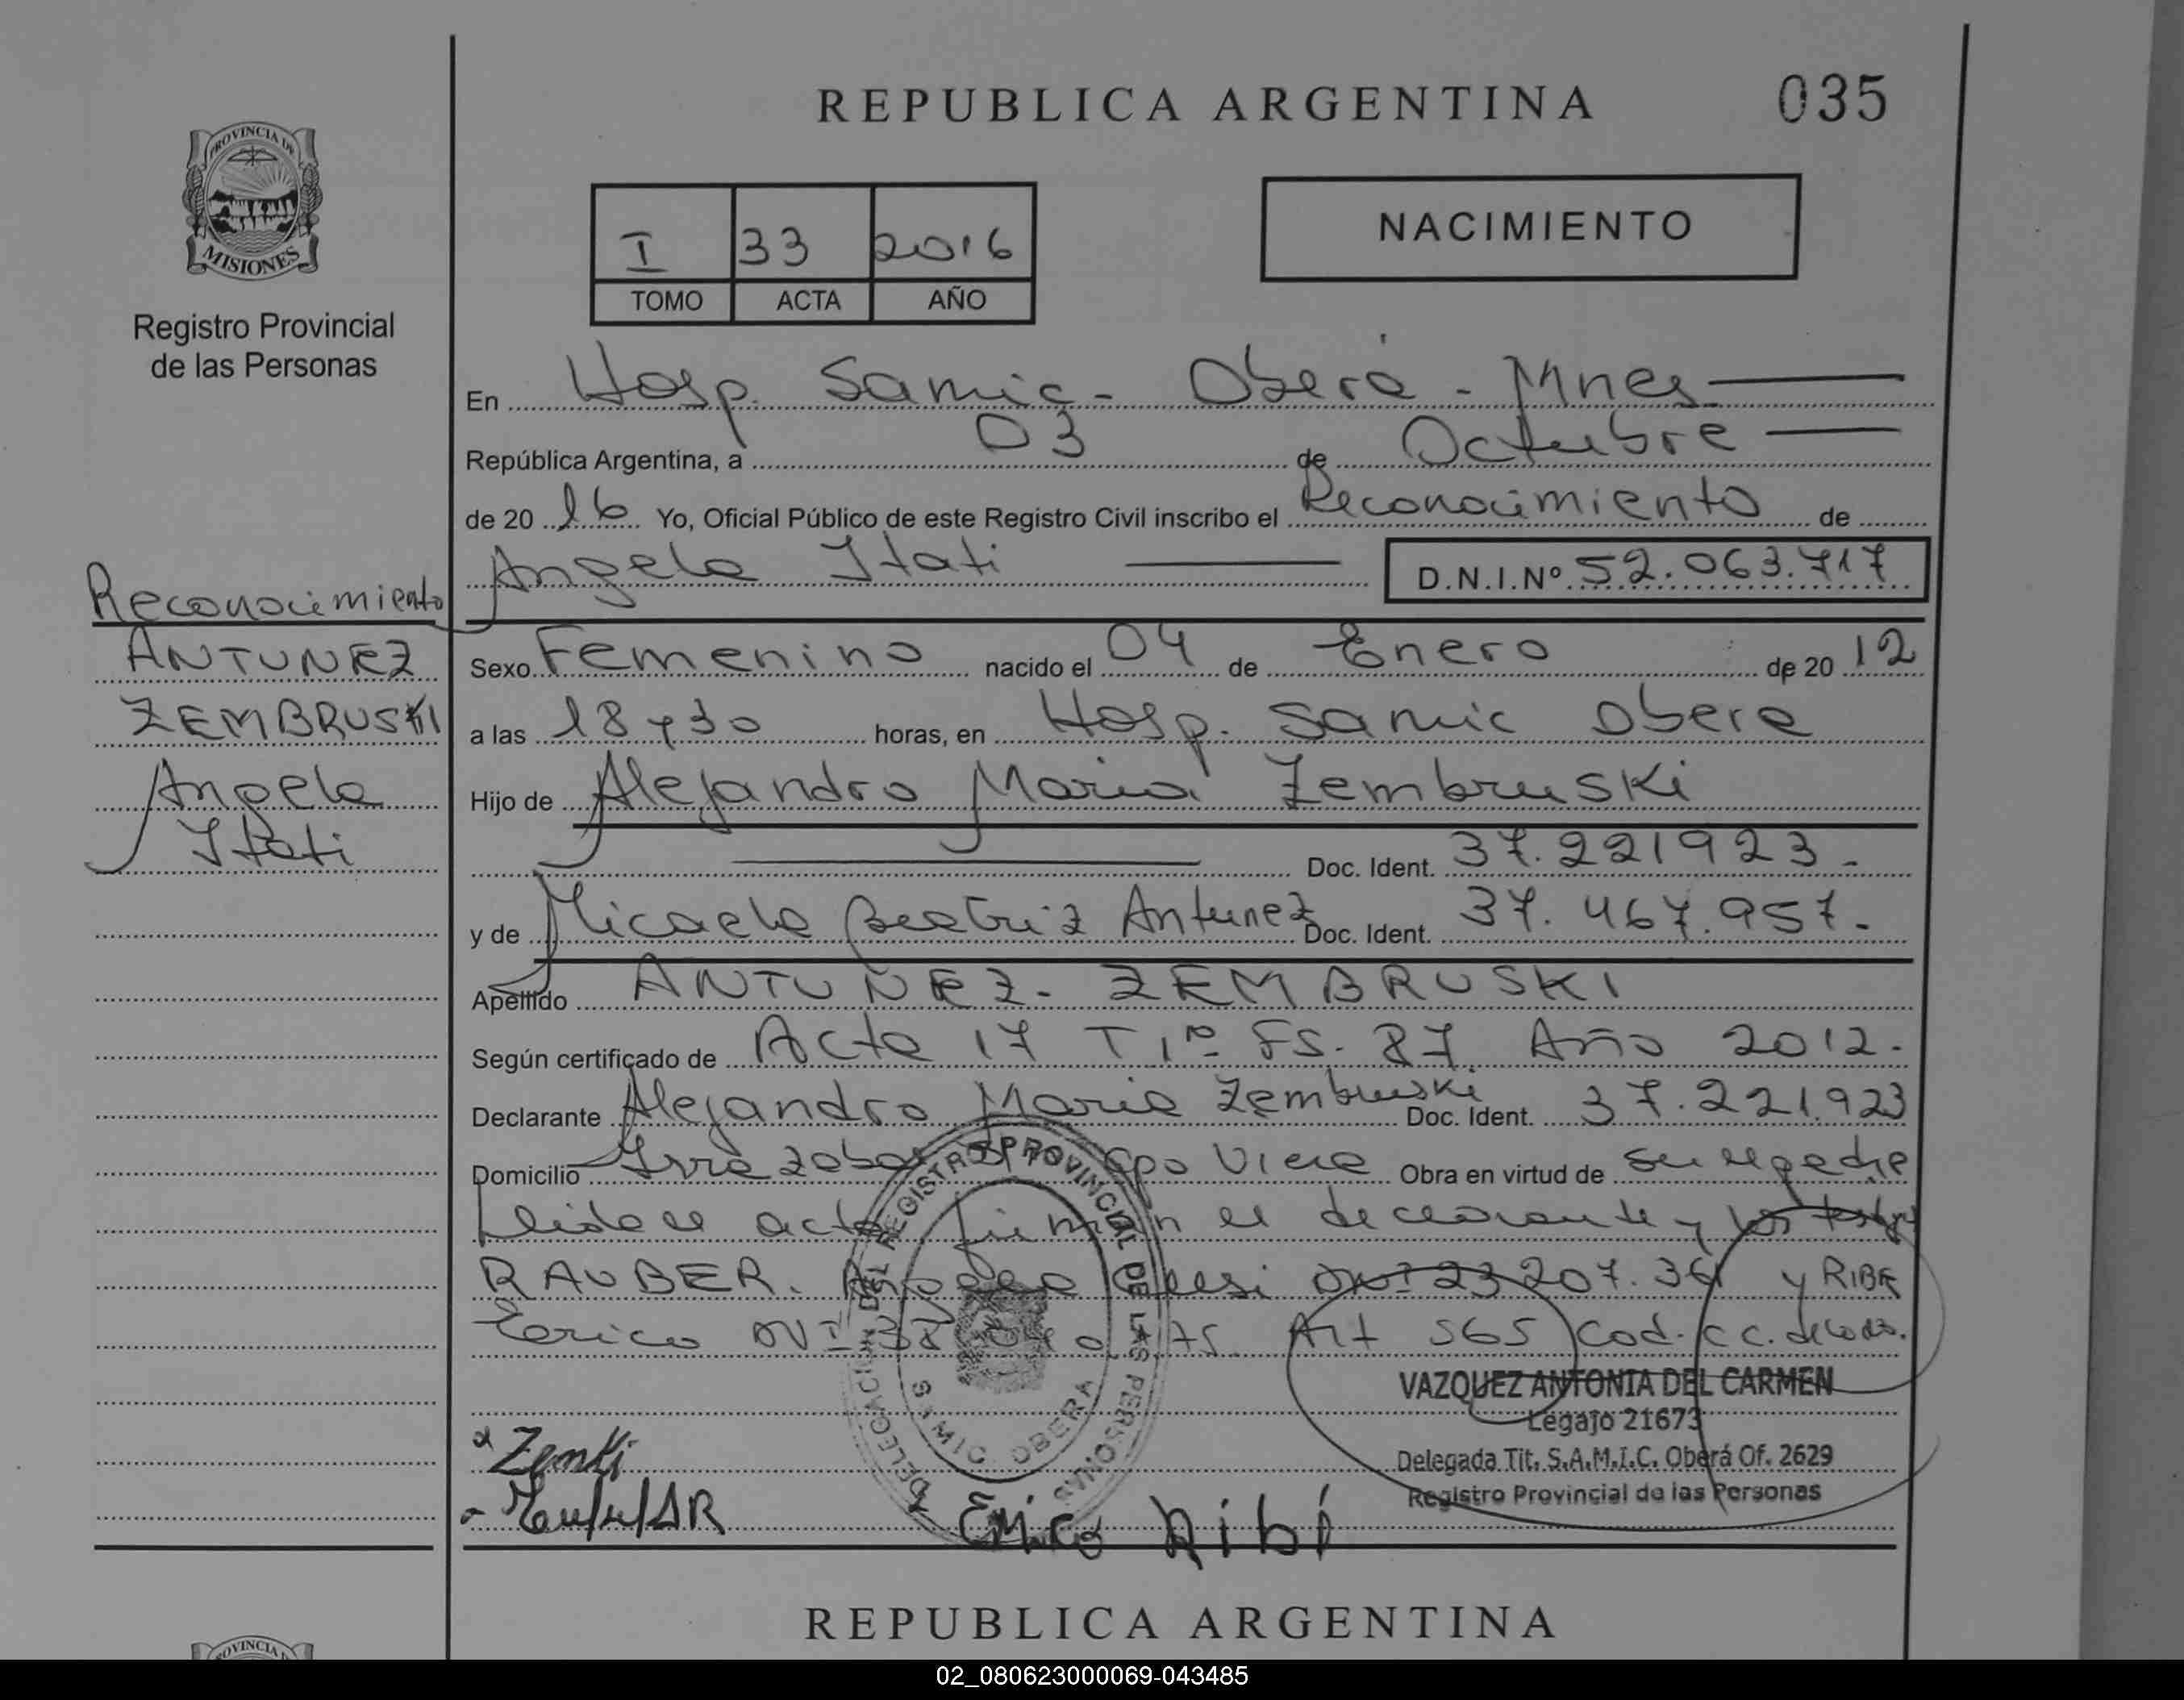 REPUBLICA ARGENTINA
035
PROVINCIA DE
MISIONES
Registro Provincial
de las Personas
I 33 2016
TOMO ACTA AÑO
NACIMIENTO
En Hosp. Samic - Oberá - Mnes
República Argentina, a 03 de Octubre
de 20 16 Yo, Oficial Público de este Registro Civil inscribo el Reconocimiento de
Angela Itati D.N.I.Nº 52.063.717
Reconocimiento
ANTUNEZ
ZEMBRUSKI
Angela
Itati
Sexo Femenino nacido el 04 de Enero de 20 12
a las 18 y 30 horas, en Hosp. Samic Obera
Hijo de Alejandro Maria Zembruski
Doc. Ident. 37.221923.
y de Micaela Beatriz Antunez Doc. Ident. 37.467.957.
Apellido ANTUNEZ - ZEMBRUSKI
Según certificado de Acta 17 T 1º Fs. 87 Año 2012.
Declarante Alejandro Maria Zembruski Doc. Ident. 37.221.923
Domicilio Cpo Viera Obra en virtud de su
Leida el acta firman el declarante y los testigos
RAUBER. DNI 23 207.361 y RIBE
DNI Art 565 Cod. C.C.
DELEGACION DEL REGISTRO PROVINCIAL DE LAS PERSONAS
SAMIC OBERA
VAZQUEZ ANTONIA DEL CARMEN
Legajo 21673
Delegada Tit. S.A.M.I.C. Oberá Of. 2629
Registro Provincial de las Personas
REPUBLICA ARGENTINA
PROVINCIA
02_080623000069-043485